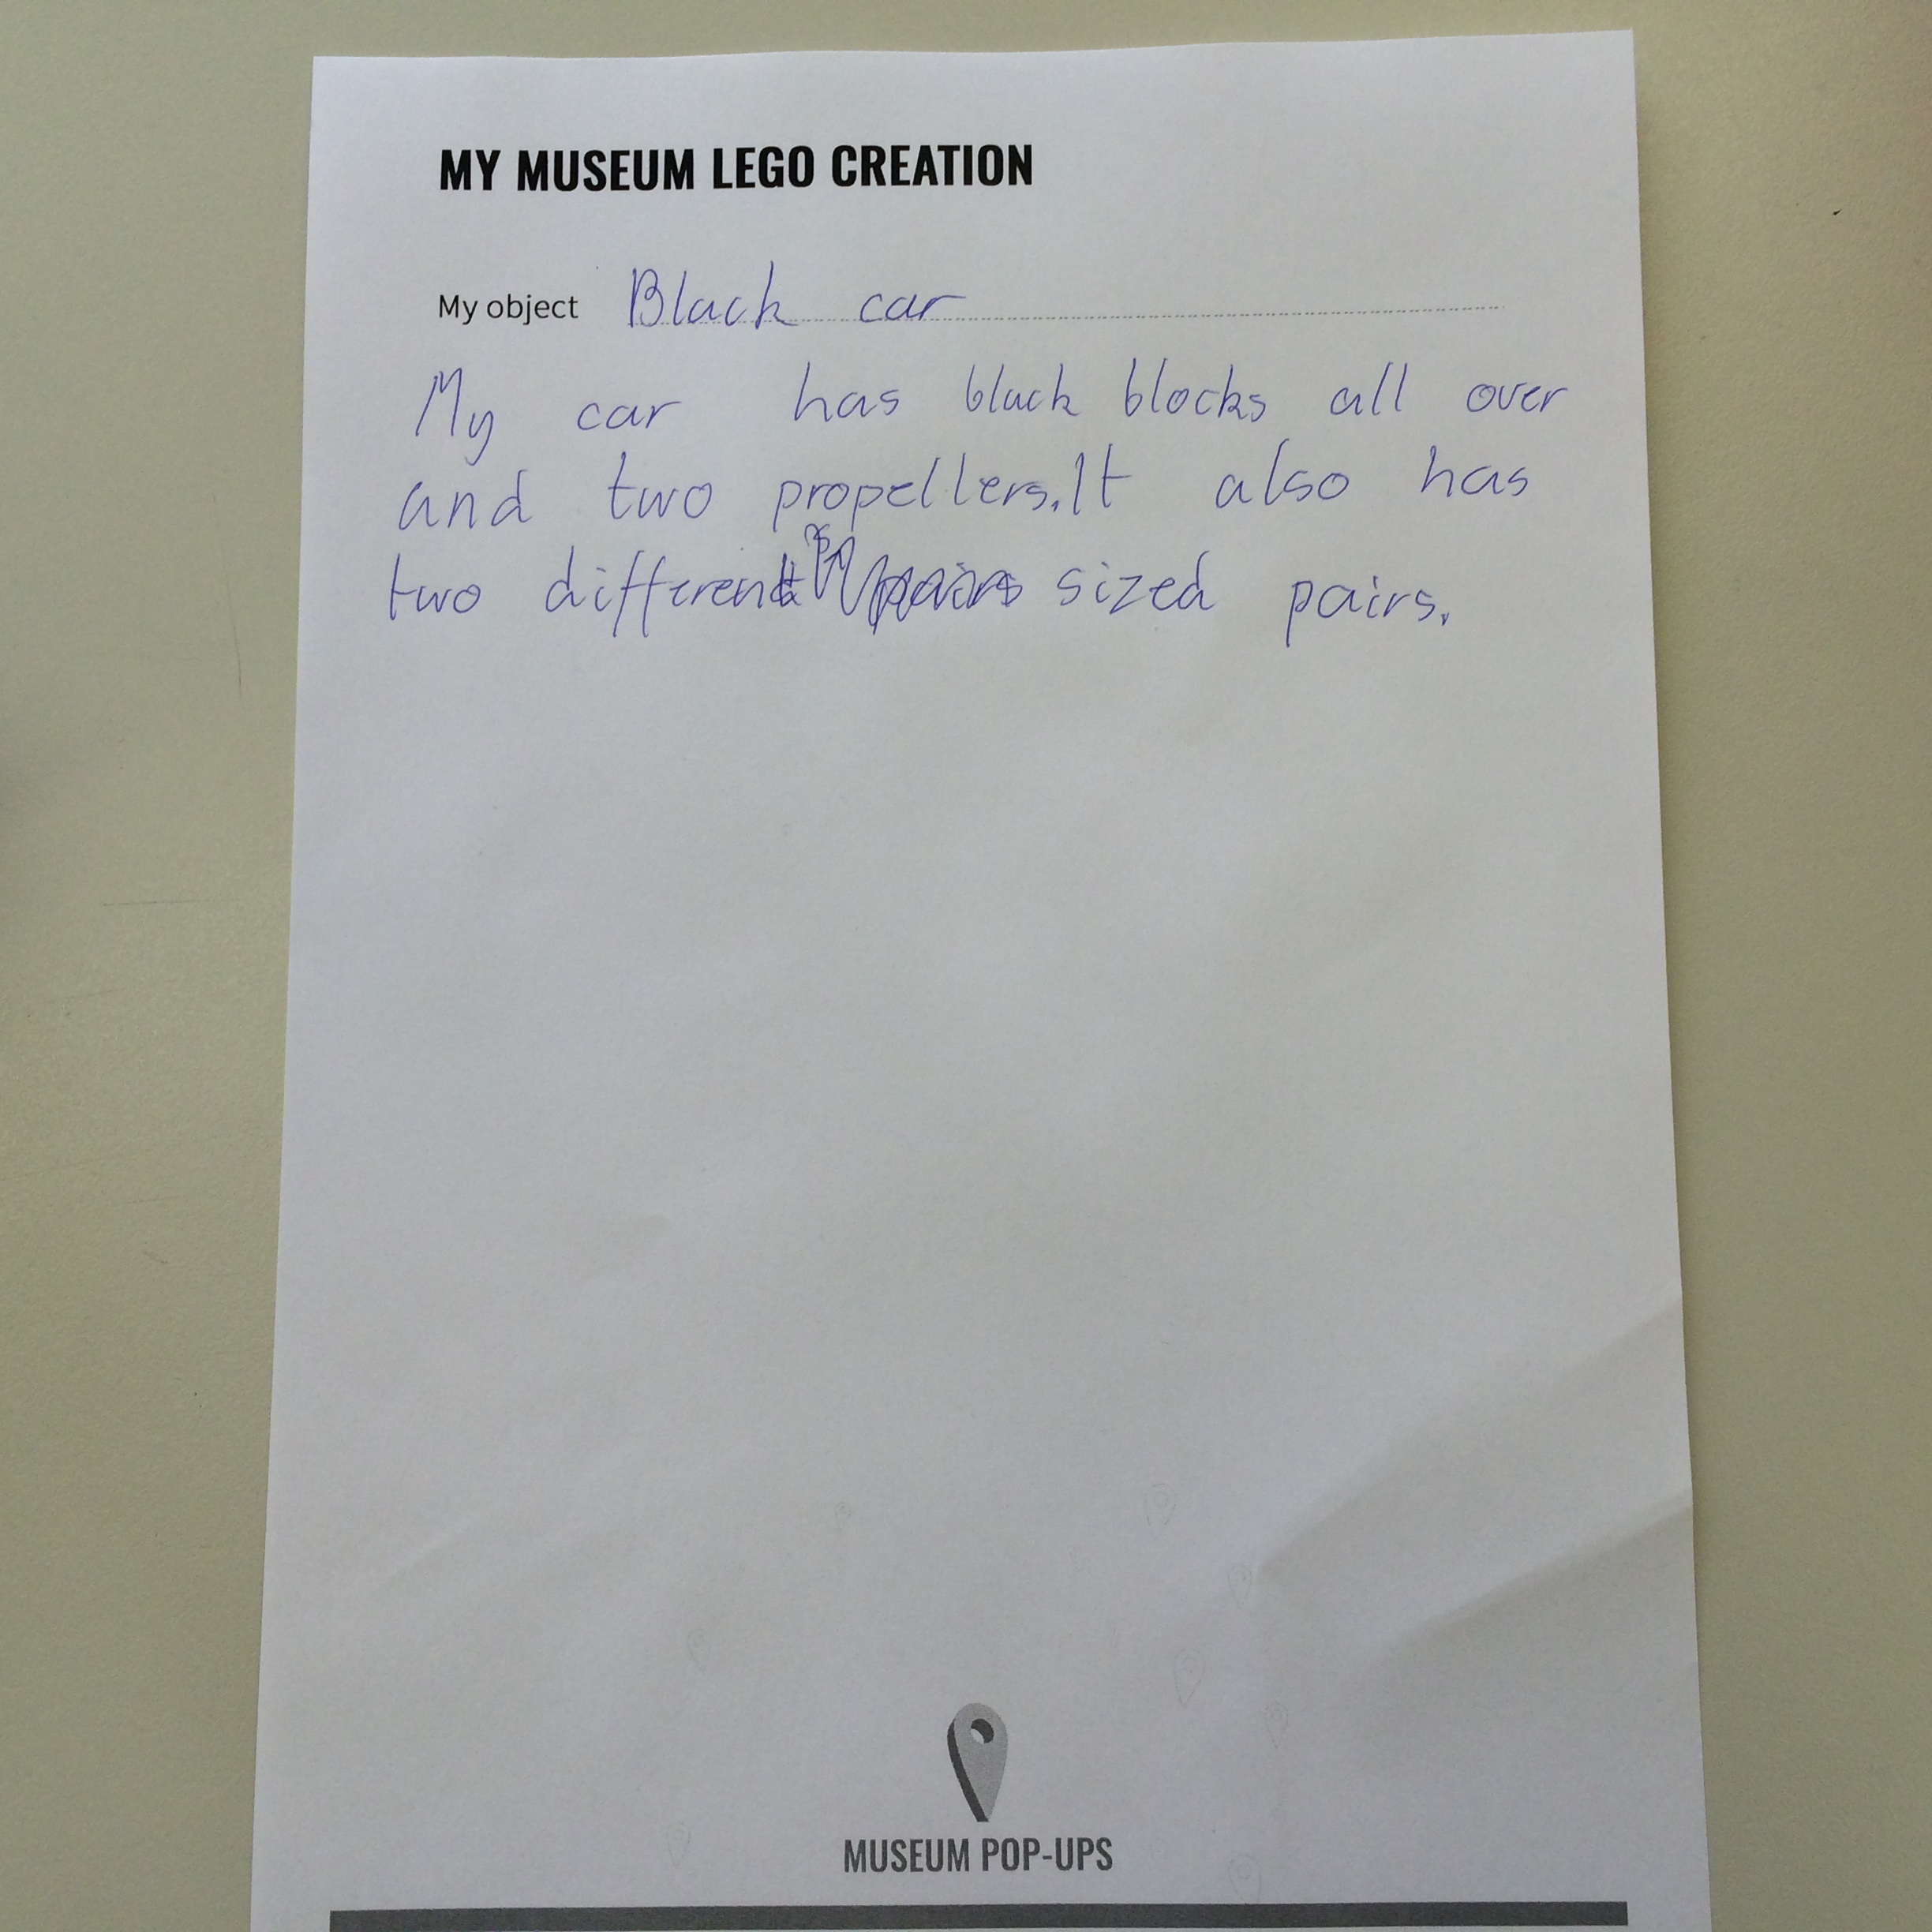 MY MUSEUM LEGO CREATION
My object Black car
My car has black blocks all over
and two propellers. It also has
two different sized pairs.
MUSEUM POP-UPS